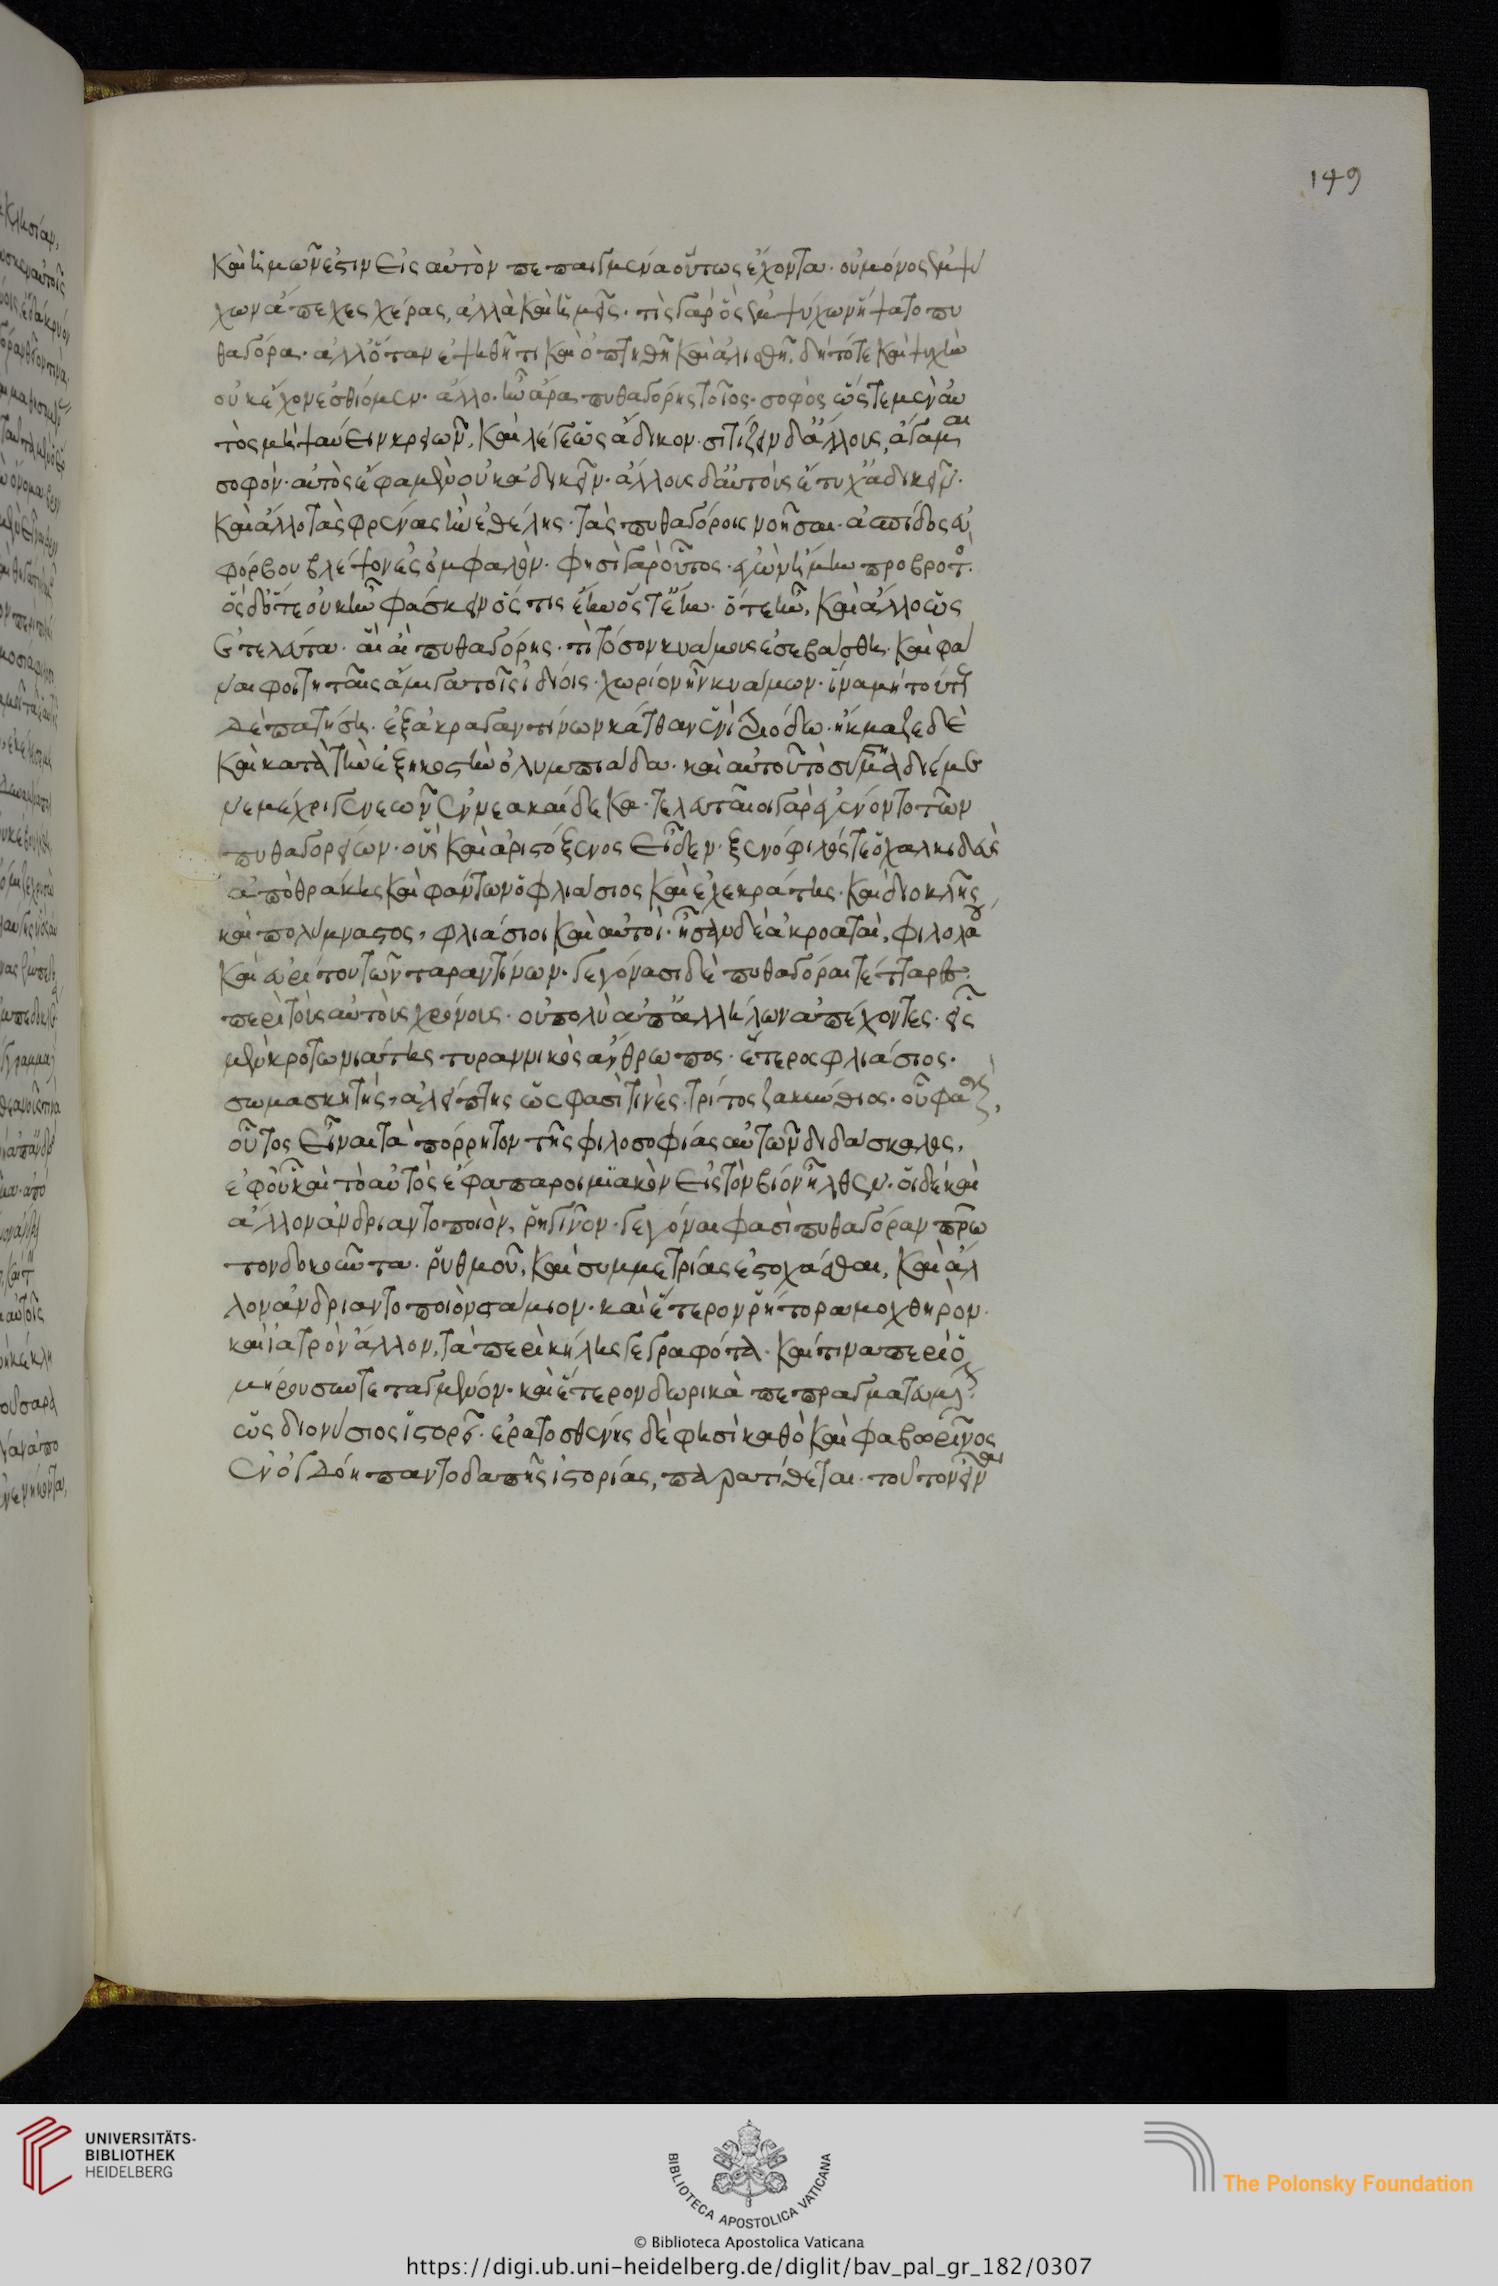 149
καὶ ἡμῶν ἐστιν εἰς αὐτὸν πεπαιγμένα οὕτως ἔχοντα· οὐ μόνος ἐμψύ
χων ἄπεχες χέρας, ἀλλὰ καὶ ἡμεῖς· τίς γὰρ ὃς ἐμψύχων ἥψατο πυ
θαγόρα· ἀλλ' ὅταν ἑψηθῆ τι καὶ ὀπτηθῆ καὶ ἁλισθῆ, δή τότε καὶ ψυχὴν
οὐκ ἔχον ἐσθίομεν· ἄλλο· ἦν ἄρα πυθαγόρης τοῖος· σοφὸς ὥς τε μὲν αὐ
τὸς μὴ ψαύειν κρειῶν, καὶ λέγε ὡς ἄδικον· σιτίζειν δ' ἄλλους, ἄγαμαι
σοφόν· αὐτὸς ἔφα μὲν οὐκ ἀδικεῖν· ἄλλους δ' αὐτοὺς ἔτυχ' ἀδικεῖν·
καὶ ἄλλο τὰς φρένας ἢν ἐθέλης· τὰς πυθαγόροις νοῆσαι· ἀσπίδος εὐ
φόρβου βλέψον ἐς ὀμφαλόν· φησὶ γὰρ οὗτος· ἐγὼν ἤμην προβροτ·
ὃς δ' ὅτε οὐκ ἦν φάσκειν ὅς τις ἔην ὅς τ' ἔην· ὅτε ἦν, καὶ ἄλλο ὡς
ἐτελεύτα· αἲ αἲ πυθαγόρης· τί τόσον κυάμους ἐσεβάσθη· καὶ φά
ναι φοιτηταῖς ἄμιγα τοῖς ἰδίοις· χωρίον ἦν κυάμων· ἵνα μὴ τούτους
δὲ πατήση· ἐξ ἀκραγαντίνων κάτθαν' ἐνὶ διόδω· ἤκμαζε δὲ
καὶ κατὰ τὴν ἑξηκοστὴν ὀλυμπιάδα· καὶ αὐτοῦ τὸ σύστημα διέμε
νε μέχρι γενεῶν ἐννεακαίδεκα· τελευταῖοι γὰρ ἐγένοντο τῶν
πυθαγορείων· οὓς καὶ ἀριστόξενος εἶδεν· ξενόφιλός τε ὁ χαλκιδεὺς
ἀπὸ θράκης καὶ φάντων ὁ φλιάσιος καὶ ἐχεκράτης· καὶ διοκλῆς
καὶ πολύμναστος, φλιάσιοι καὶ αὐτοί· ἦσαν δὲ ἀκροαταὶ, φιλολάου
καὶ εὐρύτου τῶν ταραντίνων· γεγόνασι δὲ πυθαγόραι τέτταρες·
περὶ τοὺς αὐτοὺς χρόνους· οὐ πολὺ ἀπ' ἀλλήλων ἀπέχοντες· εἷς
μὲν κροτωνιάτης τυραννικὸς ἄνθρωπος· ἕτερος φλιάσιος·
σωμασκητής, ἀλείπτης ὥς φασὶ τινές· τρίτος ζακύνθιος· οὗ φασὶν
οὗτος εἶναι τἀπόρρητον τῆς φιλοσοφίας αὐτῶν διδάσκαλος,
ἐφ' οὗ καὶ τὸ αὐτὸς ἔφα παροιμϊακὸν εἰς τὸν βίον ἦλθεν· οἱ δὲ καὶ
ἄλλον ἀνδριαντοποιὸν, ῥηγῖνον· γεγόναι φασὶ πυθαγόραν πρῶ
τον δοκοῦντα· ῥυθμοῦ, καὶ συμμετρίας ἐστοχάσθαι, καὶ ἄλ
λον ἀνδριαντοποιὸν σάμιον· καὶ ἕτερον ῥήτορα μοχθηρὸν·
καὶ ἰατρὸν ἄλλον, τὰ περὶ κήλης γεγραφότα· καί τινα περὶ ὁ
μήρου συντεταγμένον· καὶ ἕτερον δωρικὰ πεπραγματευμένον
ὡς διονύσιος ἱστορεῖ· ἐρατοσθένης δὲ φησὶ καθὸ καὶ φαβωρῖνος
ἐν ὀγδόη παντοδαπῆς ἱστορίας, παρατίθεται· τοῦτον εἶναι
UNIVERSITÄTS-
BIBLIOTHEK
HEIDELBERG
BIBLIOTECA APOSTOLICA VATICANA
The Polonsky Foundation
© Biblioteca Apostolica Vaticana
https://digi.ub.uni-heidelberg.de/diglit/bav_pal_gr_182/0307